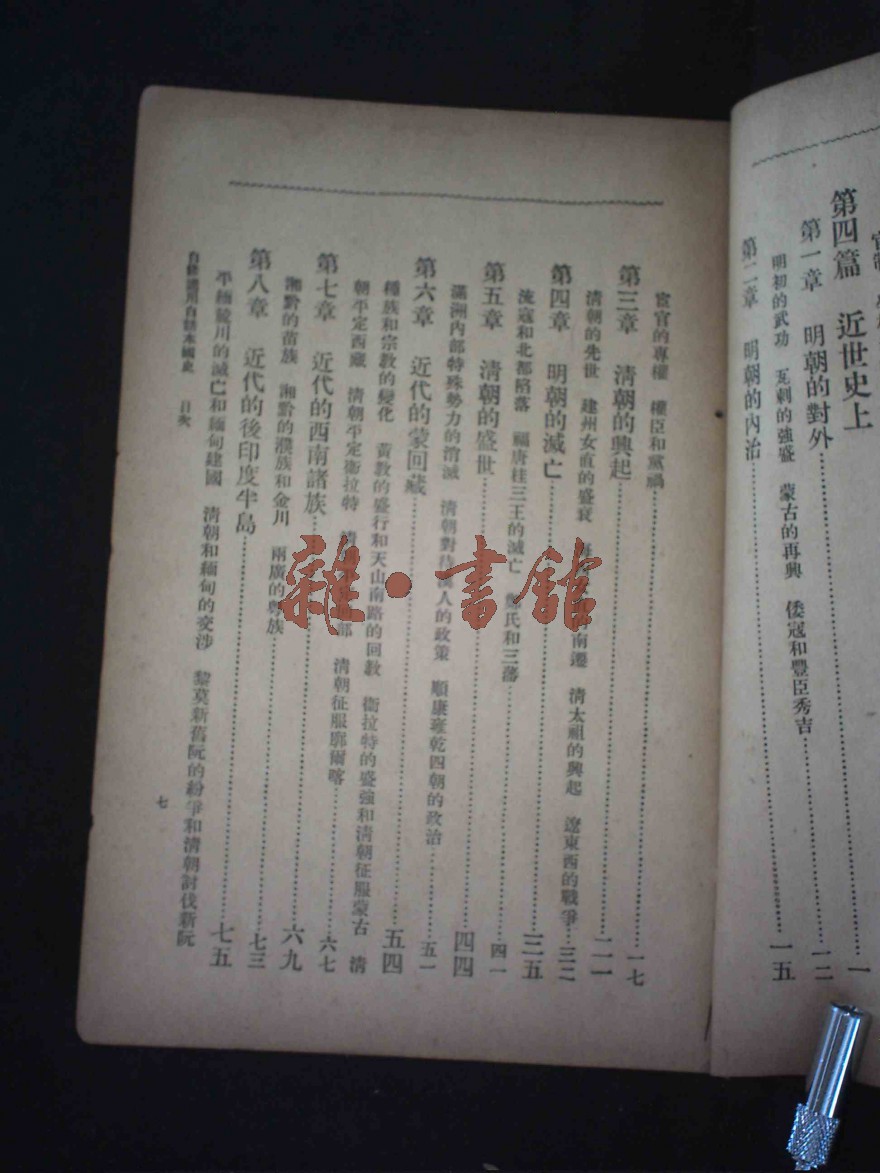 第四篇 近世史上……一
第一章 明朝的對外……一二
明初的武功 瓦剌的強盛 蒙古的再興 倭寇和豐臣秀吉
第二章 明朝的內治……一五
宦官的專權 權臣和黨禍……一七
第三章 清朝的興起……二一
清朝的先世 建州女直的盛衰 南遷 清太祖的興起 遼東西的戰爭……三二
第四章 明朝的滅亡……三五
流寇和北都陷落 福唐桂三王的滅亡 鄭氏和三藩……四一
第五章 清朝的盛世……四四
滿洲內部特殊勢力的消滅 清朝對待漢人的政策 順康雍乾四朝的政治……五一
第六章 近代的蒙回藏……五四
種族和宗教的變化 黃教的盛行和天山南路的回教 衛拉特的盛強和清朝征服蒙古 清
朝平定西藏 清朝平定衛拉特 清朝征服廓爾喀……六七
第七章 近代的西南諸族……六九
湘黔的苗族 湘黔的濮族和金川 兩廣的粵族……七三
第八章 近代的後印度半島……七五
平緬麓川的滅亡和緬甸建國 清朝和緬甸的交涉 黎莫新舊阮的紛爭和清朝討伐新阮
自修適用白話本國史 目次
七
雜·書館